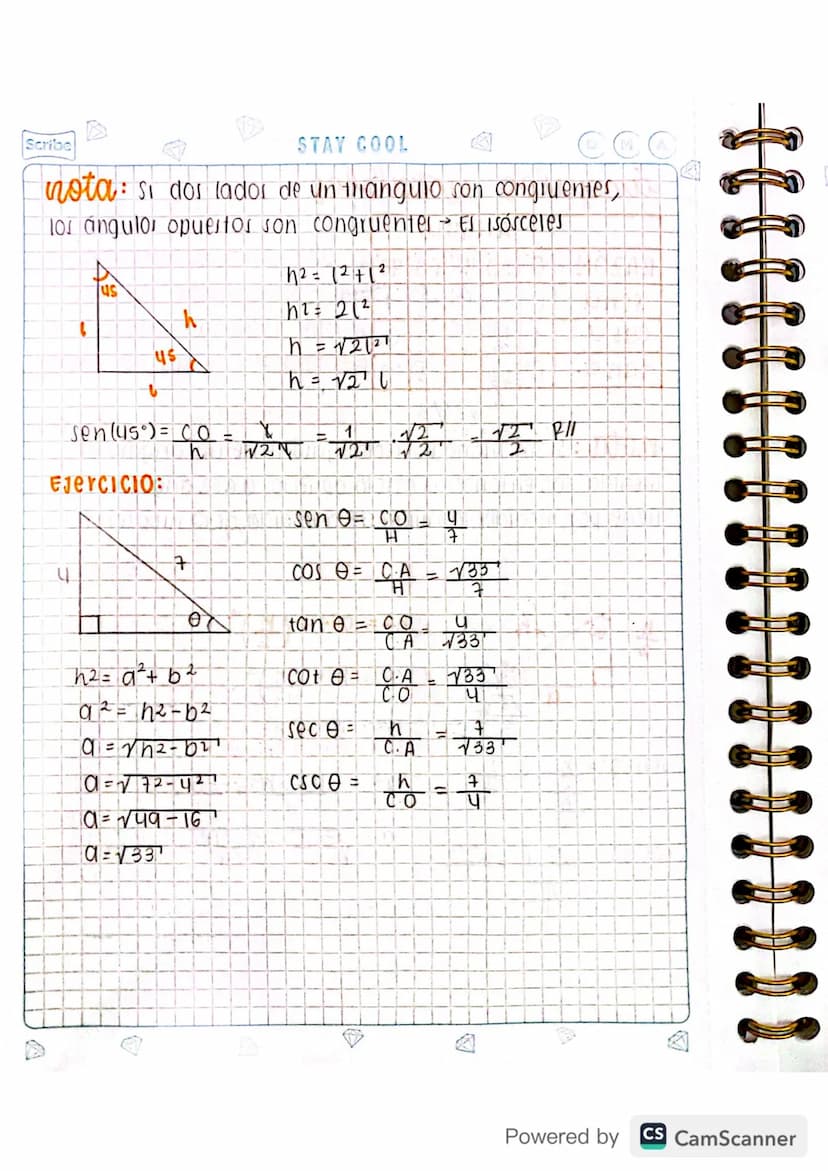 Scribe
STAY COOL
D M A
nota: Si dos lados de un triángulo son congruentes,
los ángulos opuestos son congruentes → Es isósceles
45
l
h
45
l
h² = l² + l²
h² = 2l²
h = √2l²
h = √2 l
sen(45°) = CO/h = l/√2 l = 1/√2 · √2/√2 = √2/2 R//
Ejercicio:
4
7
θ
sen θ = CO/H = 4/7
cos θ = C.A/H = √33/7
tan θ = CO/CA = 4/√33
cot θ = C.A/C.O = √33/4
sec θ = h/C.A = 7/√33
csc θ = h/CO = 7/4
h² = a² + b²
a² = h² - b²
a = √h² - b²
a = √7² - 4²
a = √49 - 16
a = √33
Powered by CS CamScanner